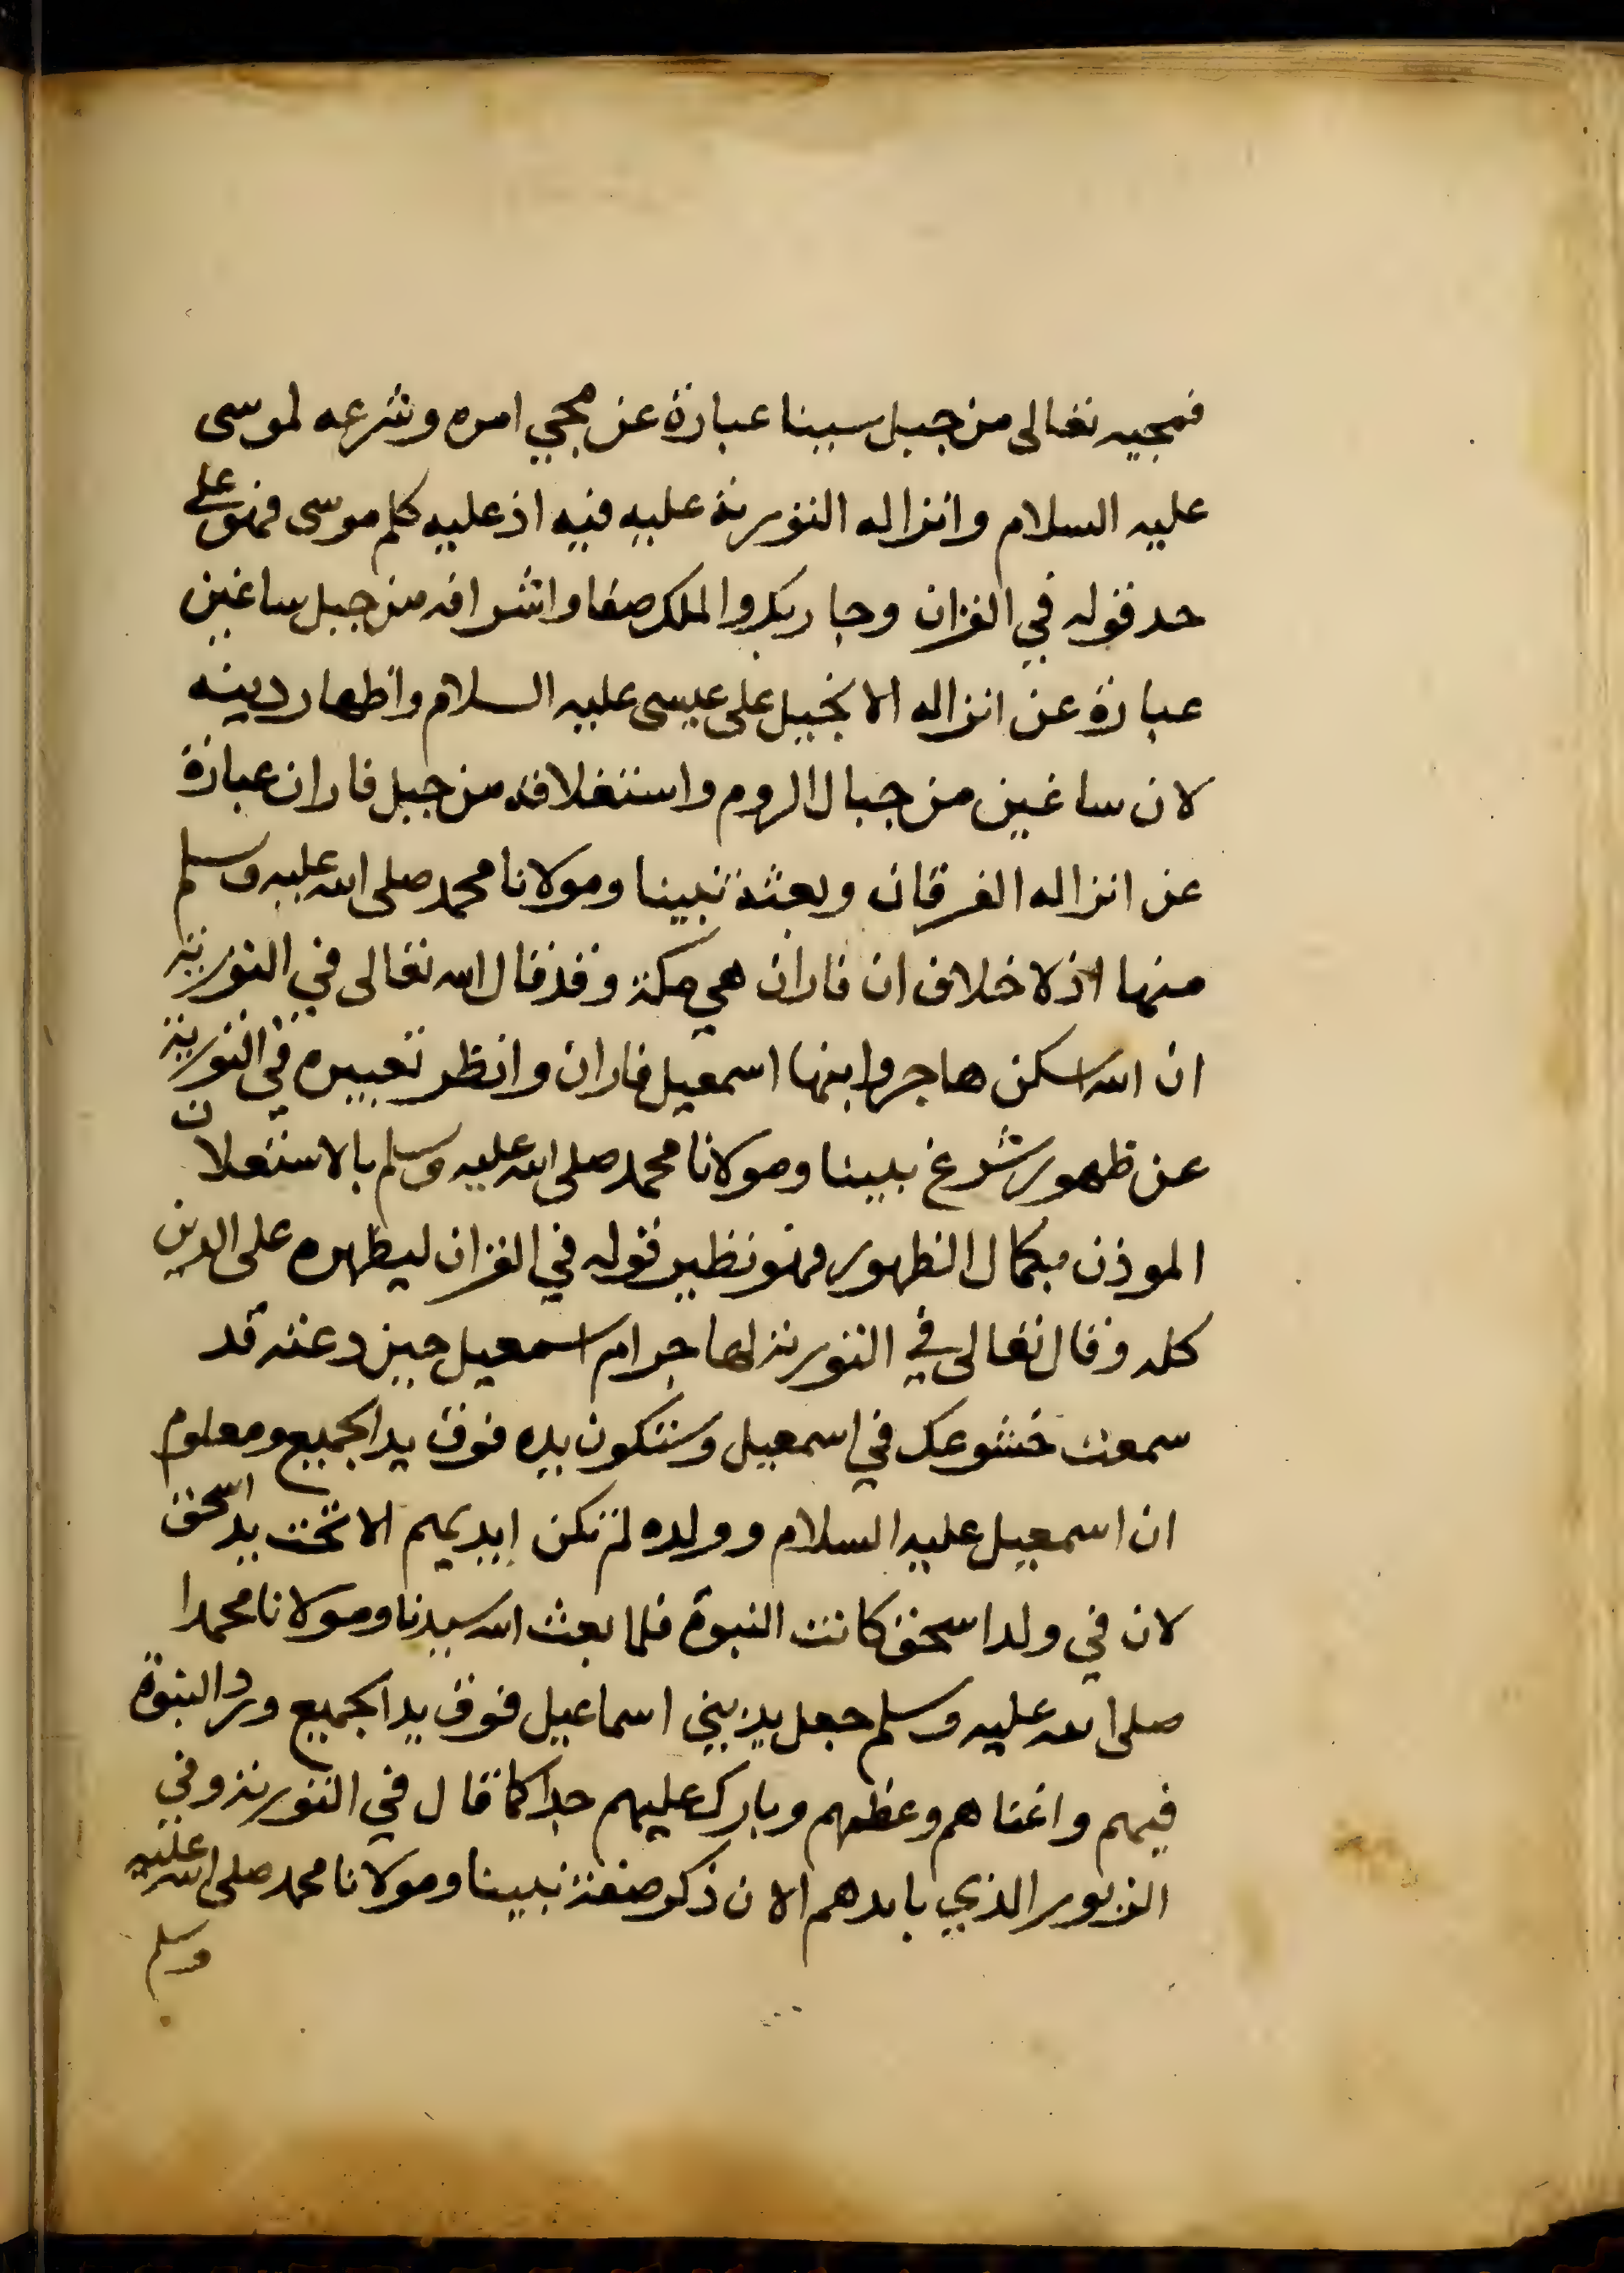 فمجيه تعالى من جبل سينا عبارة عن مجي امره وشرعه لموسى
عليه السلام وانزاله التورىة عليه فيه اذ عليه كلم موسى فهو على
حد قوله في القران وجا ربك والملك صفا واشراقه من جبل ساغين
عبارة عن انزاله الانجيل على عيسى عليه السلام واظهار دينه
لان ساغين من جبال الروم واستعلانه من جبل فاران عبارة
عن انزاله الفرقان وبعثة نبينا ومولانا محمد صلى الله عليه وسلم
منها اذ لا خلاف ان فاران هي مكة وقد قال الله تعالى في التورىة
ان الله اسكن هاجر وابنها اسمعيل فاران وانظر تعبيره في التورىة
عن ظهور شرع نبينا ومولانا محمد صلى الله عليه وسلم بالاستعلان
الموذن بكمال الظهور فهو نظير قوله في القران ليظهره على الدين
كله وقال تعالى في التورىة لهاجر ام اسمعيل حين دعته قد
سمعت خشوعك في اسمعيل وستكون يده فوق يد الجميع ومعلوم
ان اسمعيل عليه السلام وولده لم تكن ايديهم الا تحت يد اسحق
لان في ولد اسحق كانت النبوة فلما بعث الله سيدنا ومولانا محمدا
صلى الله عليه وسلم جعل يد بني اسماعيل فوق يد الجميع ورد النبوة
فيهم واغناهم وعظمهم وبارك عليهم جدا كما قال في التورىة وفي
الزبور الذي بايدهم الان ذكر صفة نبينا ومولانا محمد صلى الله عليه
وسلم